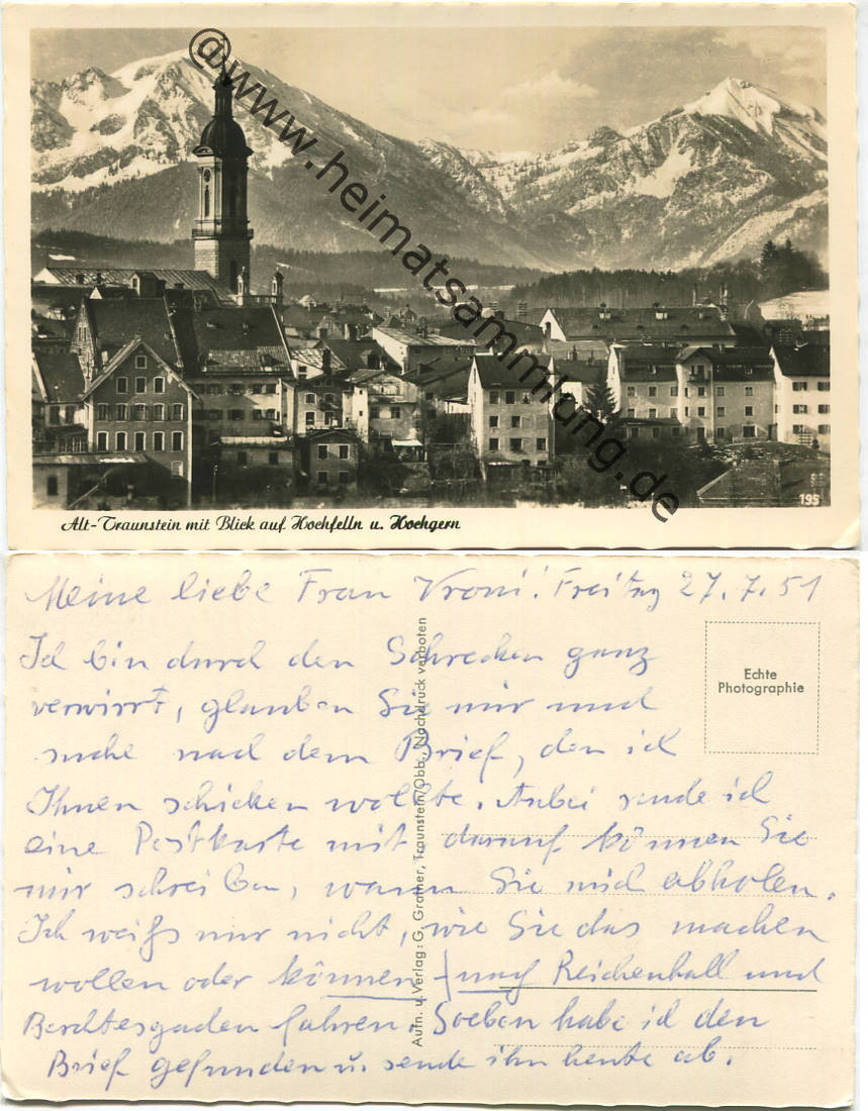 @www.heimatsammlung.de
195
Alt-Traunstein mit Blick auf Hochfelln u. Hochgern
Meine liebe Frau Vroni! Freitag 27.7.51
Ich bin durch den Schrecken ganz
verwirrt, glauben Sie mir und
suche nach dem Brief, den ich
Ihnen schicken wollte. Anbei sende ich
eine Postkarte mit darauf können Sie
mir schreiben, wann Sie mich abholen.
Ich weiß nur nicht, wie Sie das machen
wollen oder können nach Reichenhall und
Berchtesgaden fahren. Soeben habe ich den
Brief gefunden u. sende ihn heute ab.
Echte
Photographie
Aufn. u. Verlag: G. Grather, Traunstein/Obb., Nachdruck verboten